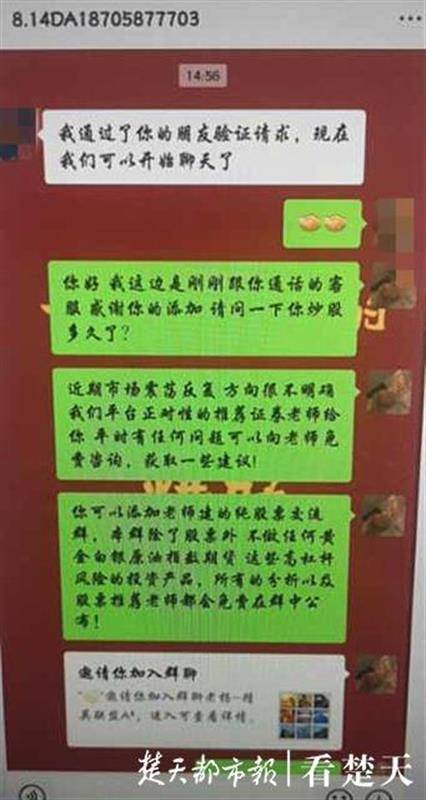 8.14DA18705877703
14:56
我通过了你的朋友验证请求，现在
我们可以开始聊天了
你好 我这边是刚刚跟你通话的客
服 感谢你的添加 请问一下你炒股
多久了？
近期市场震荡反复 方向很不明确
我们平台正对性的推荐证券老师给
你 平时有任何问题可以向老师免
费咨询，获取一些建议！
你可以添加老师建的纯股票交流
群，本群除了股票外 不做任何黄
金白银原油指数期货 这些高杠杆
风险的投资产品，所有的分析以及
股票推荐老师都会免费在群中公
布！
邀请你加入群聊
邀请你加入群聊老杨-精
英联盟A，进入可查看详情。
楚天都市報 | 看楚天